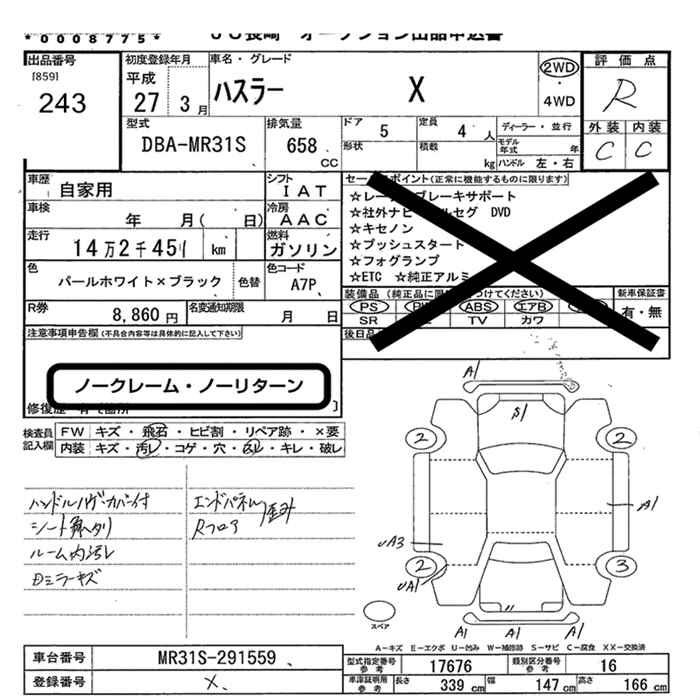 *0008775*
JU長崎 オークション出品申込書
出品番号
[859]
243
初度登録年月
平成
27 3 月
車名・グレード
ハスラー X
2WD
・
4WD
評価点
R
外装 内装
C C
型式
DBA-MR31S
排気量
658 CC
ドア 5
定員 4 人
ディーラー・並行
形状
積載 kg
モデル年式 年
ハンドル 左・右
車歴 自家用
シフト IAT
車検 年 月( 日)
冷房 AAC
走行 14万2千451 km
燃料 ガソリン
色 パールホワイト×ブラック 色替
色コード A7P
R券 8,860 円
名変通知期限 月 日
セールスポイント(正常に機能するものに限ります)
☆レーダーブレーキサポート
☆社外ナビ フルセグ DVD
☆キセノン
☆プッシュスタート
☆フォグランプ
☆ETC ☆純正アルミ
装備品 (純正品に〇をつけてください)
PS PW ABS エアB
SR TV カワ
新車保証書
有・無
後日品
注意事項申告欄(不具合内容等は具体的に記入して下さい)
ノークレーム・ノーリターン
修復歴 有 で箇所 ]
検査員記入欄
FW キズ・飛石・ヒビ割・リペア跡・×要
内装 キズ・汚レ・コゲ・穴・凹レ・キレ・破レ
ハンドルハゲ・カバー付
シート角ヘタリ
ルーム内汚レ
Dミラーキズ
エンドパネル
Rフロア 歪ミ
A1
S1
2 2
A1
UA3
2 3
UA1
A1 A1
スペア
A-キズ E-エクボ U-凹み W-補修跡 S-サビ C-腐食 XX-交換済
車台番号 MR31S-291559
登録番号 X
型式指定番号参考 17676
類別区分番号参考 16
車庫証明用参考 長さ 339 cm 幅 147 cm 高さ 166 cm